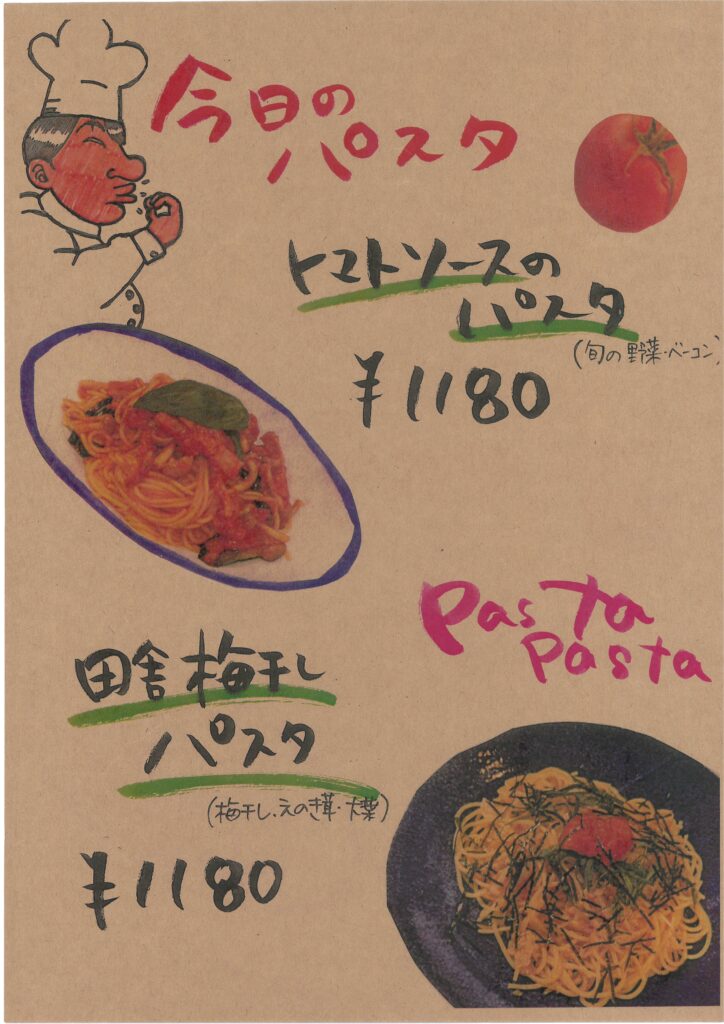 今日の
パスタ
トマトソースの
パスタ
(旬の野菜・ベーコン)
¥1180
Pasta
Pasta
田舎梅干し
パスタ
(梅干し・えのき茸・大葉)
¥1180